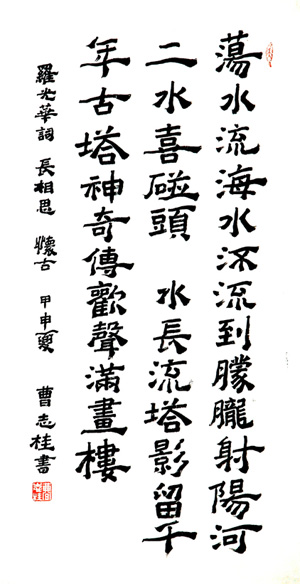 蕩水流海水流流到朦朧射陽河
二水喜碰頭 水長流塔影留千
年古塔神奇傳歡聲滿畫樓
羅光華詞 長相思 懷古 甲申夏 曹志桂書